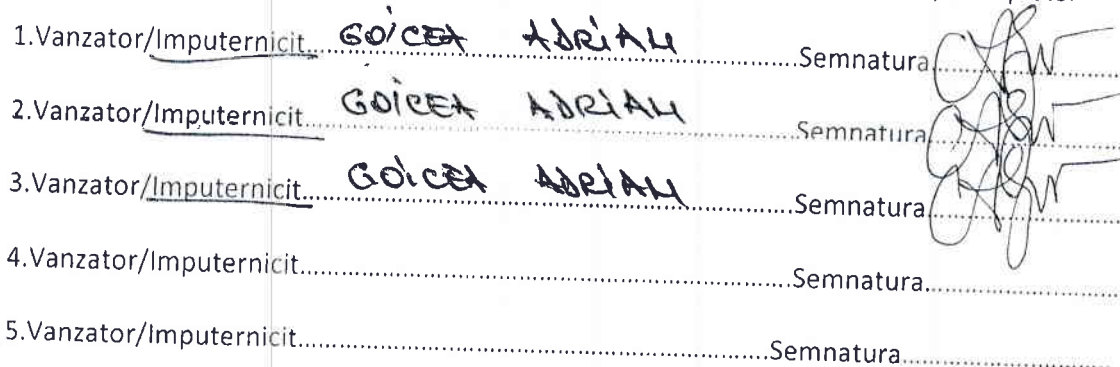 1.Vanzator/Imputernicit....GOICEA ADRIAN....Semnatura....
2.Vanzator/Imputernicit....GOICEA ADRIAN....Semnatura....
3.Vanzator/Imputernicit....GOICEA ADRIAN....Semnatura....
4.Vanzator/Imputernicit....Semnatura....
5.Vanzator/Imputernicit....Semnatura....